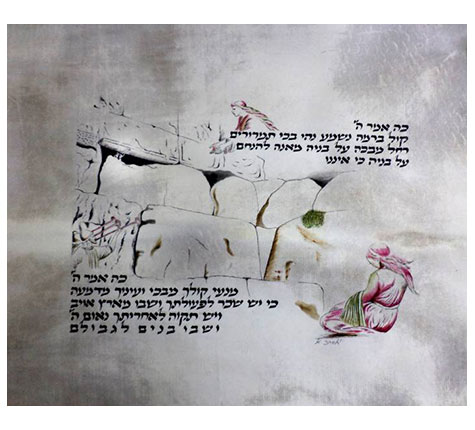 כה אמר ה'
קול ברמה נשמע נהי בכי תמרורים
רחל מבכה על בניה מאנה להנחם
על בניה כי איננו
כה אמר ה'
מנעי קולך מבכי ועיניך מדמעה
כי יש שכר לפעולתך ושבו מארץ אויב
ויש תקוה לאחריתך נאום ה'
ושבו בנים לגבולם